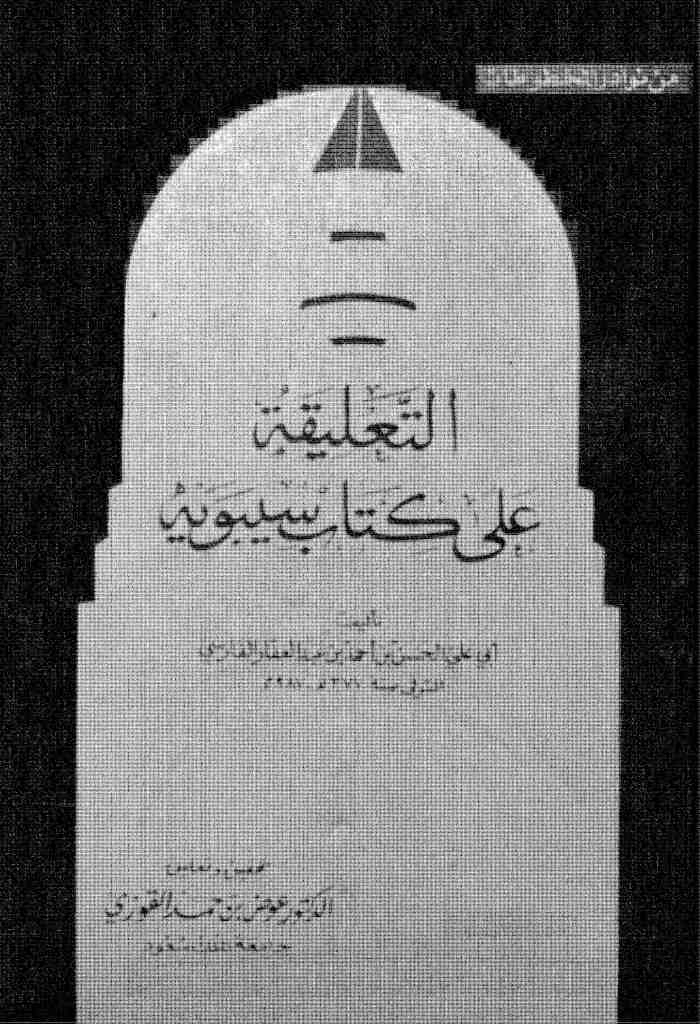 من نوادر المخطوطات
التَّعليقَة
عَلى كتَاب سيبَويْه
تأليف
أبي علي الحسن بن أحمد بن عبد الغفار الفارسي
المتوفى سنة ٣٧٧ هـ - ٩٨٧ م
تحقيق وتعليق
الدكتور عوض بن حمد القوزي
جامعة الملك سعود